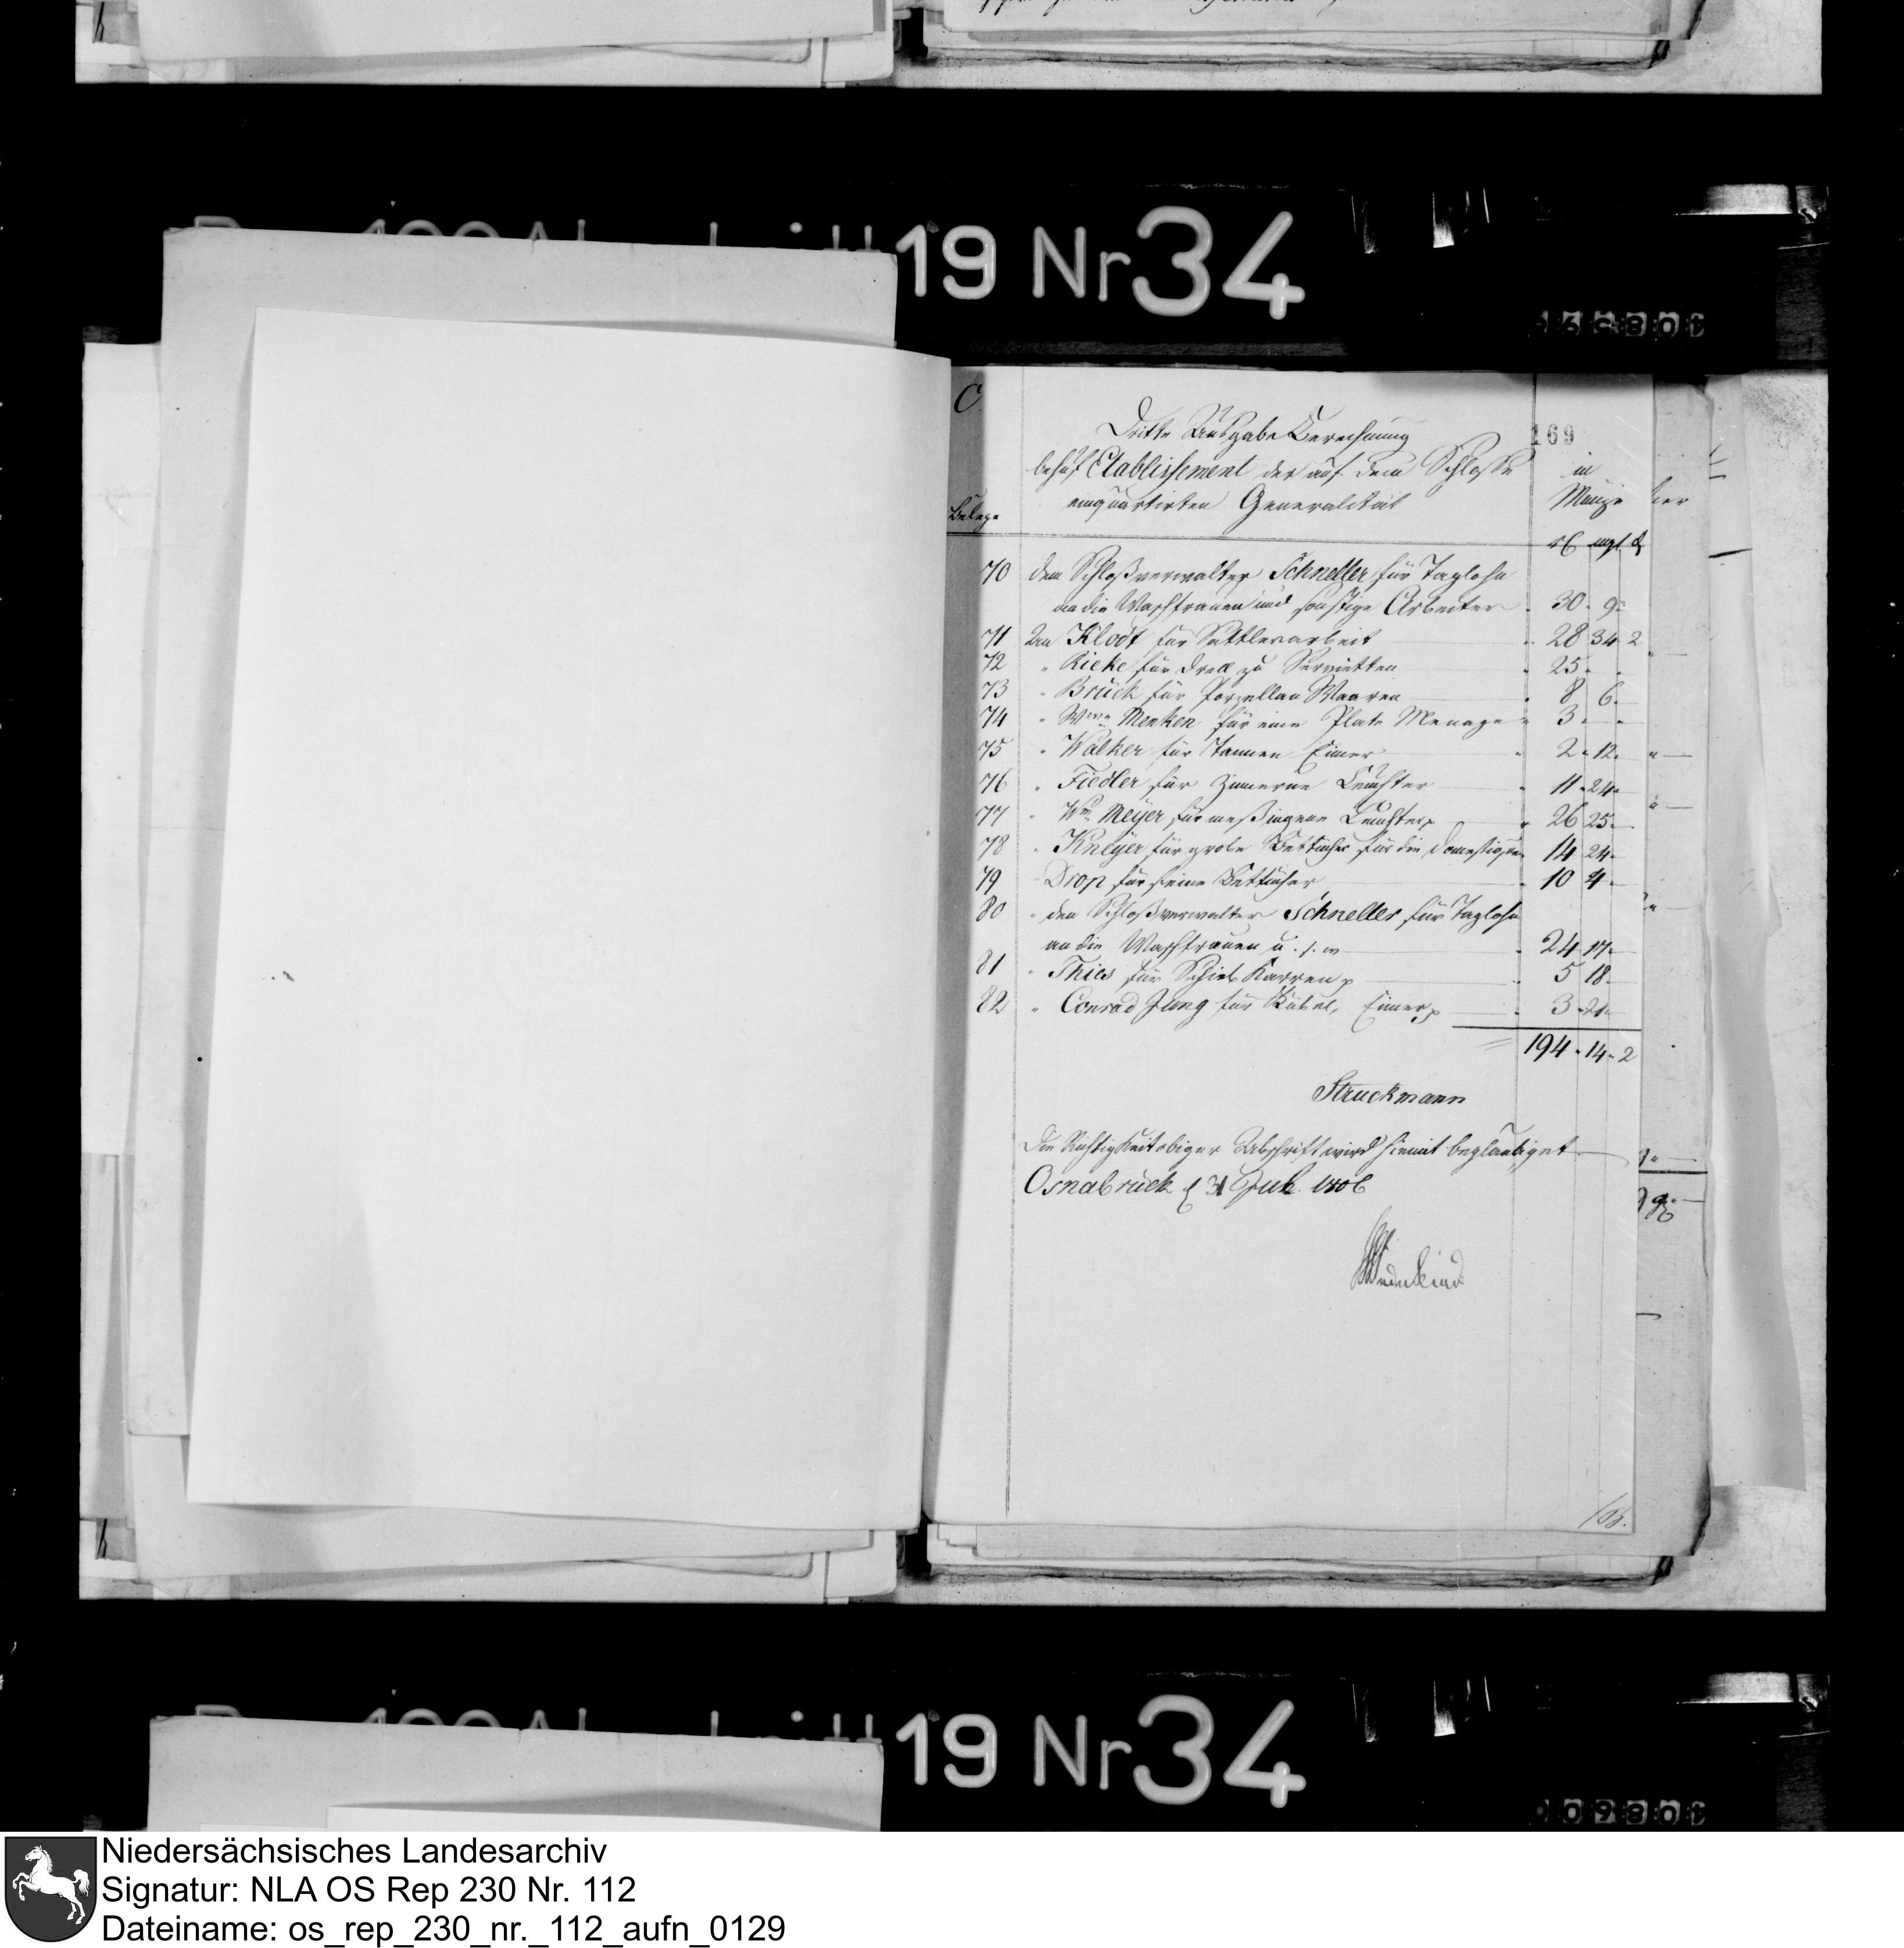 19 Nr 34
C
169
Dritte Ausgabe Berechnung
behuf Etablissement der auf dem Schlosse
einquartirten Generalität
in
Münze
Belege
rt mgl d
70 dem Schloßverwalter Schneller für Taglohn
an die Waschfrauen und sonstige Arbeiter 30 9
71 An Klodt für Sattlerarbeit 28 34 2
72 " Rieke für Drell zu Servietten 25
73 " Brück für Porzellan Waaren 8 6
74 " Wwe Menken für eine Plate Menage 3
75 " Walker für Tannen Eimer 2 12
76 " Fiedler für zinnerne Leuchter 11 24
77 " Meyer für meßingene Leuchter 26 25
78 " Kneyer für grobe Bettücher für die Domestiquen 14 24
79 Drop für feine Bettücher 10 4
80 " den Schloßverwalter Schneller für Taglohn
an die Waschfrauen u. s. w 24 17
81 " Thies für Schieb Karren 5 18
82 " Conrad Jung für Kübel, Eimer 3 21
194 14 2
Struckmann
Die Richtigkeit obiger Abschrift wird hiemit beglaubiget
Osnabrück d 31 Jul. 1806
19 Nr 34
Niedersächsisches Landesarchiv
Signatur: NLA OS Rep 230 Nr. 112
Dateiname: os_rep_230_nr._112_aufn_0129